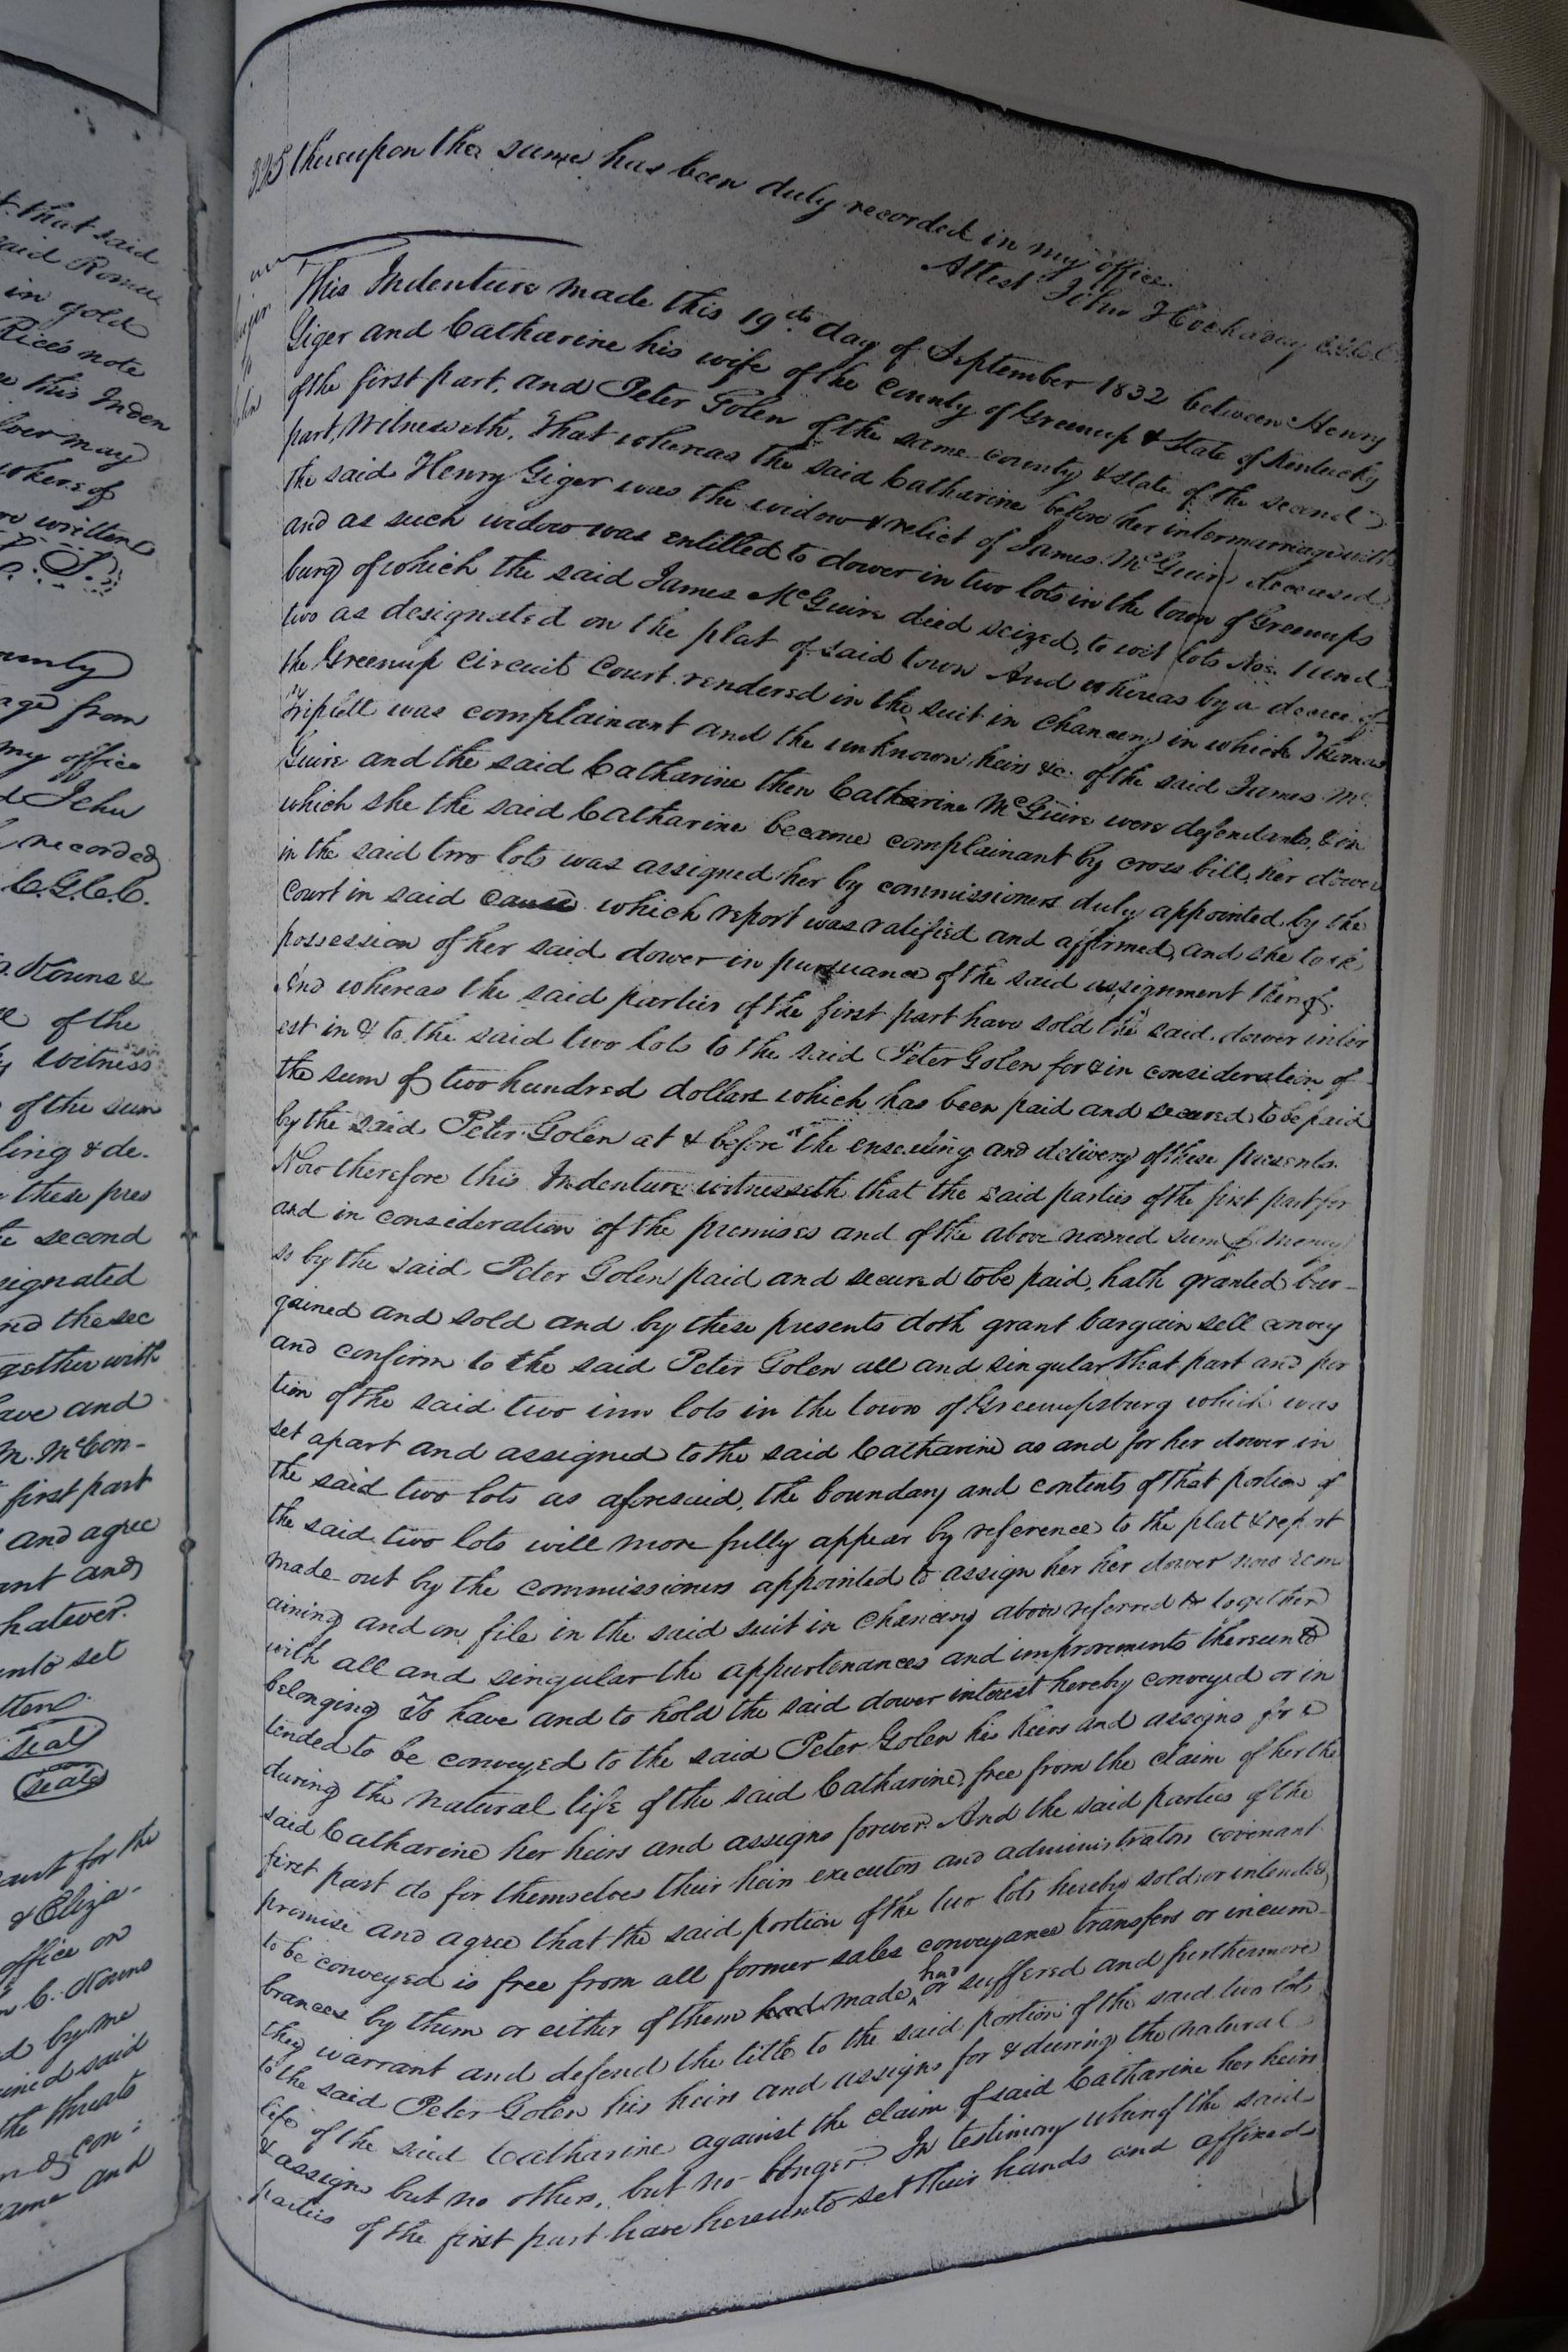 t. that said
said Romue
in gold
Rice's note
this Inden
written
L. S.
ounty
age from
my office
d John
recorded
C.G.C.C.
Nouns &
of the
witness
of the sum
ling & de.
these pres
second
signated
nd the sec
gether with
ave and
m. McCon-
first part
and agree
ant and
hatever.
unto set
tten
Seal
Seal
ant for the
& Eliza-
office on
C. Nouns
d by me
ined said
the threats
con-
ame and
325 thereupon the same has been duly recorded in my office.
Attest John Hockaday C.G.C.C.
This Indenture made this 19th day of September 1832 between Henry
Giger and Catharine his wife of the County of Greenup & State of Kentucky
of the first part, and Peter Golen of the same county & state of the second
part, Witnesseth, That whereas the said Catharine before her intermarriage with
the said Henry Giger was the widow & relict of James McGuire deceased
and as such widow was entitled to dower in two lots in the town of Greenups
burg of which the said James McGuire died seized, to wit lots Nos. 1 and
two as designated on the plat of said town And whereas by a decree of
the Greenup Circuit Court rendered in the suit in chancery in which Thomas
Triplett was complainant and the unknown heirs &c. of the said James Mc
Guire and the said Catharine then Catharine McGuire were defendants, & in
which she the said Catharine became complainant by cross bill, her dower
in the said two lots was assigned her by commissioners duly appointed by the
Court in said cause which report was ratified and affirmed, and she took
possession of her said dower in pursuance of the said assignment thereof.
And whereas the said parties of the first part have sold the said dower inter
est in & to the said two lots to the said Peter Golen for & in consideration of
the sum of two hundred dollars which has been paid and secured to be paid
by the said Peter Golen at & before the ensealing and delivery of these presents.
Now therefore this Indenture witnesseth that the said parties of the first part for
and in consideration of the premises and of the above named sum of money
so by the said Peter Golen paid and secured to be paid, hath granted bar-
gained and sold and by these presents doth grant bargain sell convey
and confirm to the said Peter Golen all and singular that part and por
tion of the said two inn lots in the town of Greenupsburg which was
set apart and assigned to the said Catharine as and for her dower in
the said two lots as aforesaid, the boundary and contents of that portion of
the said two lots will more fully appear by reference to the plat & report
made out by the commissioners appointed to assign her her dower now rem
aining and on file in the said suit in chancery above referred to together
with all and singular the appurtenances and improvements thereunto
belonging To have and to hold the said dower interest hereby conveyed or in
tended to be conveyed to the said Peter Golen his heirs and assigns for &
during the natural life of the said Catharine, free from the claim of her the
said Catharine her heirs and assigns forever. And the said parties of the
first part do for themselves their heirs executors and administrators covenant
promise and agree that the said portion of the two lots hereby sold or intended
to be conveyed is free from all former sales conveyance transfers or incum-
brances by them or either of them had made, had or suffered and furthermore
they warrant and defend the title to the said portion of the said two lots
to the said Peter Golen his heirs and assigns for & during the natural
life of the said Catharine against the claim of said Catharine her heirs
& assigns but no others, but no longer. In testimony whereof the said
parties of the first part have hereunto set their hands and affixed